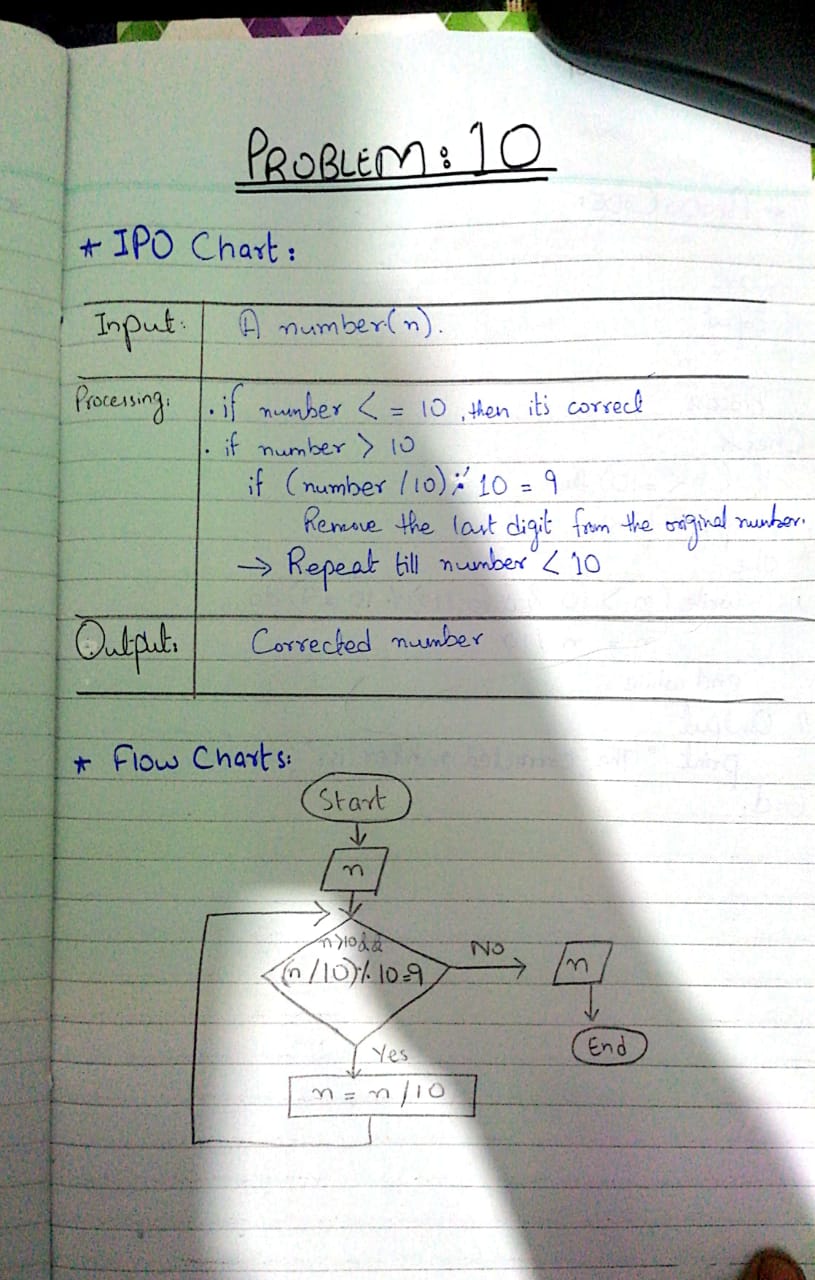 PROBLEM: 10
* IPO Chart:
Input: A number(n).
Processing: . if number <= 10, then it's correct
. if number > 10
if (number /10) % 10 = 9
Remove the last digit from the original number.
→ Repeat till number < 10
Output: Corrected number
* Flow Charts:
Start
n
n>10 &&
(n/10)% 10=9
No
n
End
Yes
n = n /10